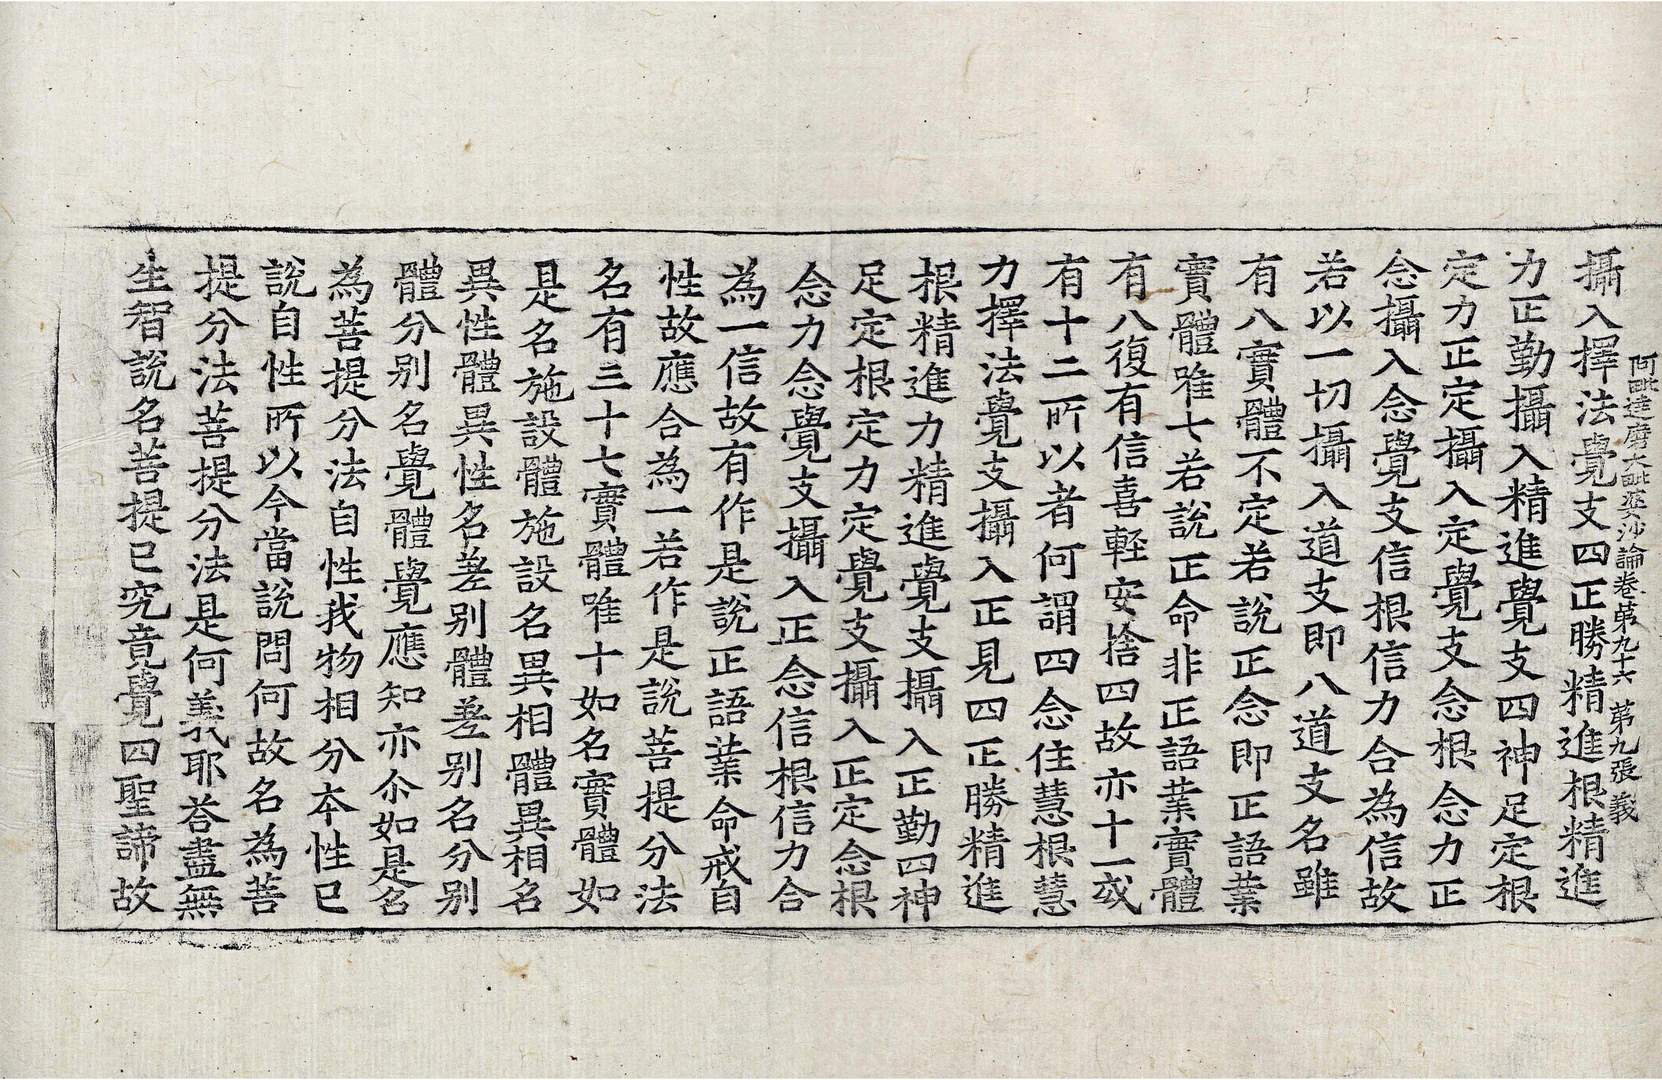 阿毗達磨大毗婆沙論卷第九十六 第九張 義
攝入擇法覺支四正勝精進根精進
力正勤攝入精進覺支四神足定根
定力正定攝入定覺支念根念力正
念攝入念覺支信根信力合為信故
若以一切攝入道支即八道支名雖
有八實體不定若說正念即正語業
實體唯七若說正命非正語業實體
有八復有信喜輕安捨四故亦十一或
有十二所以者何謂四念住慧根慧
力擇法覺支攝入正見四正勝精進
根精進力精進覺支攝入正勤四神
足定根定力定覺支攝入正定念根
念力念覺支攝入正念信根信力合
為一信故有作是說正語業命戒自
性故應合為一若作是說菩提分法
名有三十七實體唯十如名實體如
是名施設體施設名異相體異相名
異性體異性名差别體差别名分别
體分别名覺體覺應知亦尒如是名
為菩提分法自性我物相分本性已
說自性所以今當說問何故名為菩
提分法菩提分法是何義耶荅盡無
生智說名菩提已究竟覺四聖諦故